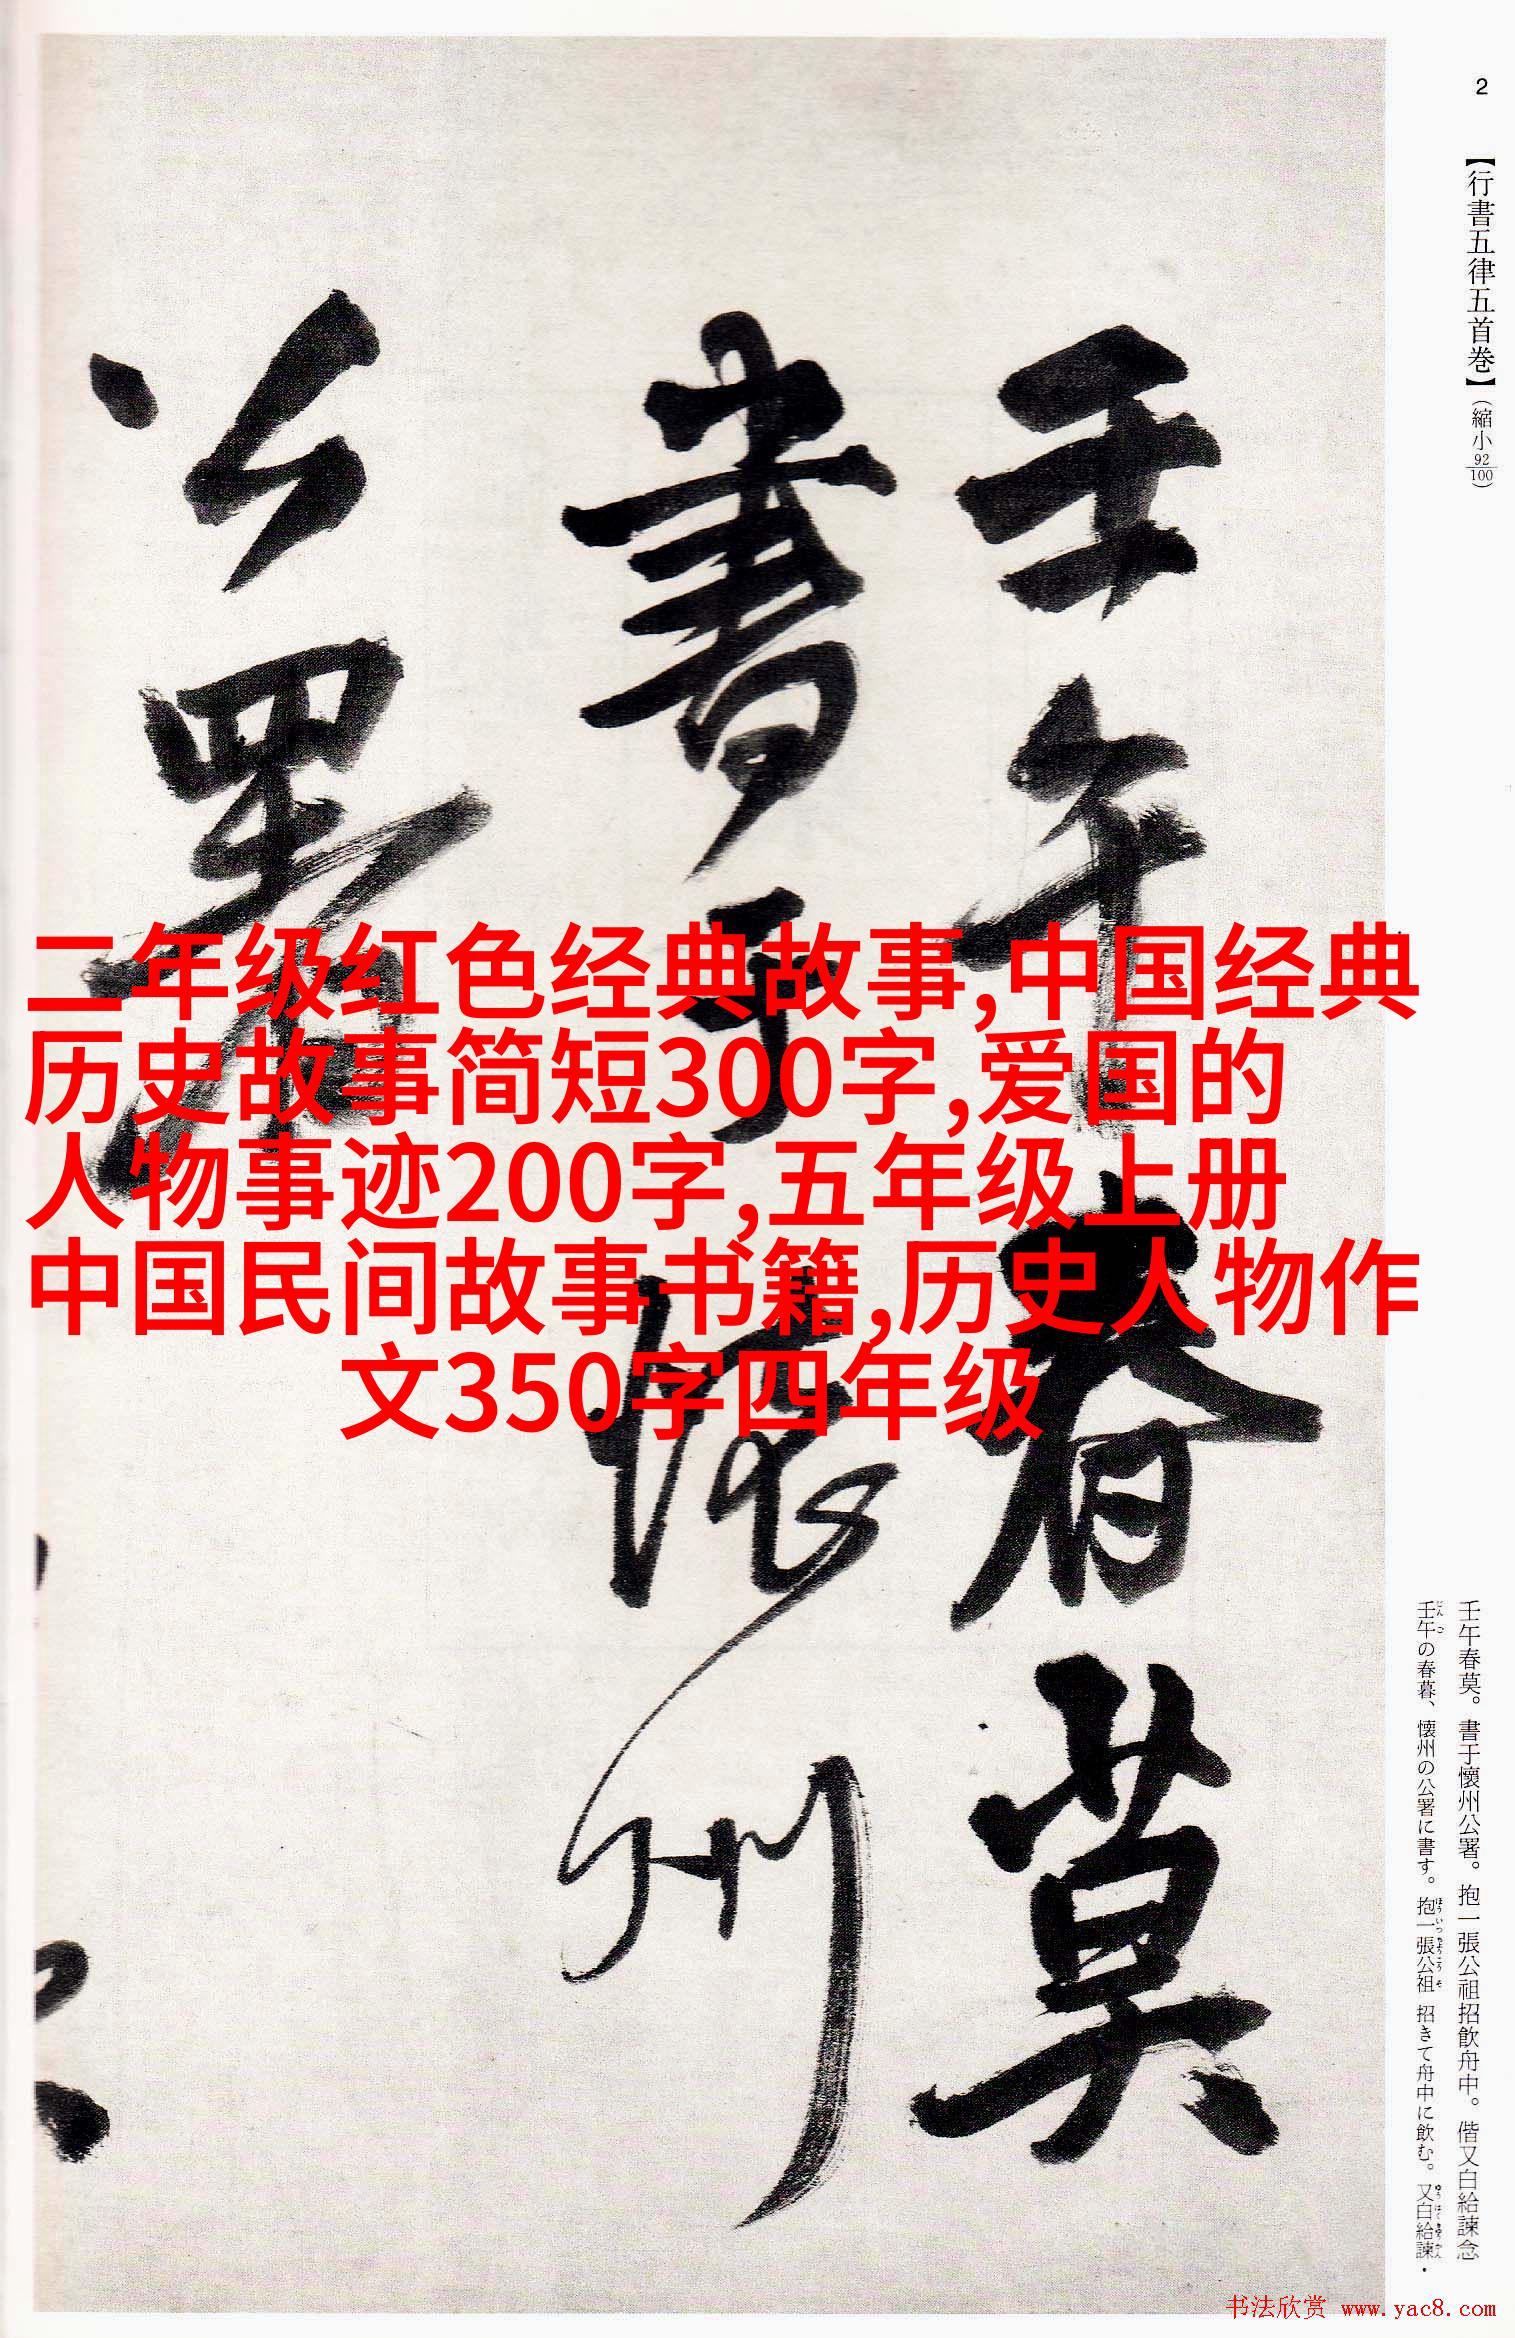 2
【行書五律五首巻】（縮小92/100）
壬午春莫
書于懷州
公署
二年级红色经典故事,中国经典
历史故事简短300字,爱国的
人物事迹200字,五年级上册
中国民间故事书籍,历史人物作
文350字四年级
壬午春莫。書于懷州公署。抱一張公祖招飮舟中。偕又白給諫念
壬午の春暮、懷州の公署に書す。抱一張公祖 招きて舟中に飲む。又白給諫・
书法欣赏 www.yac8.com